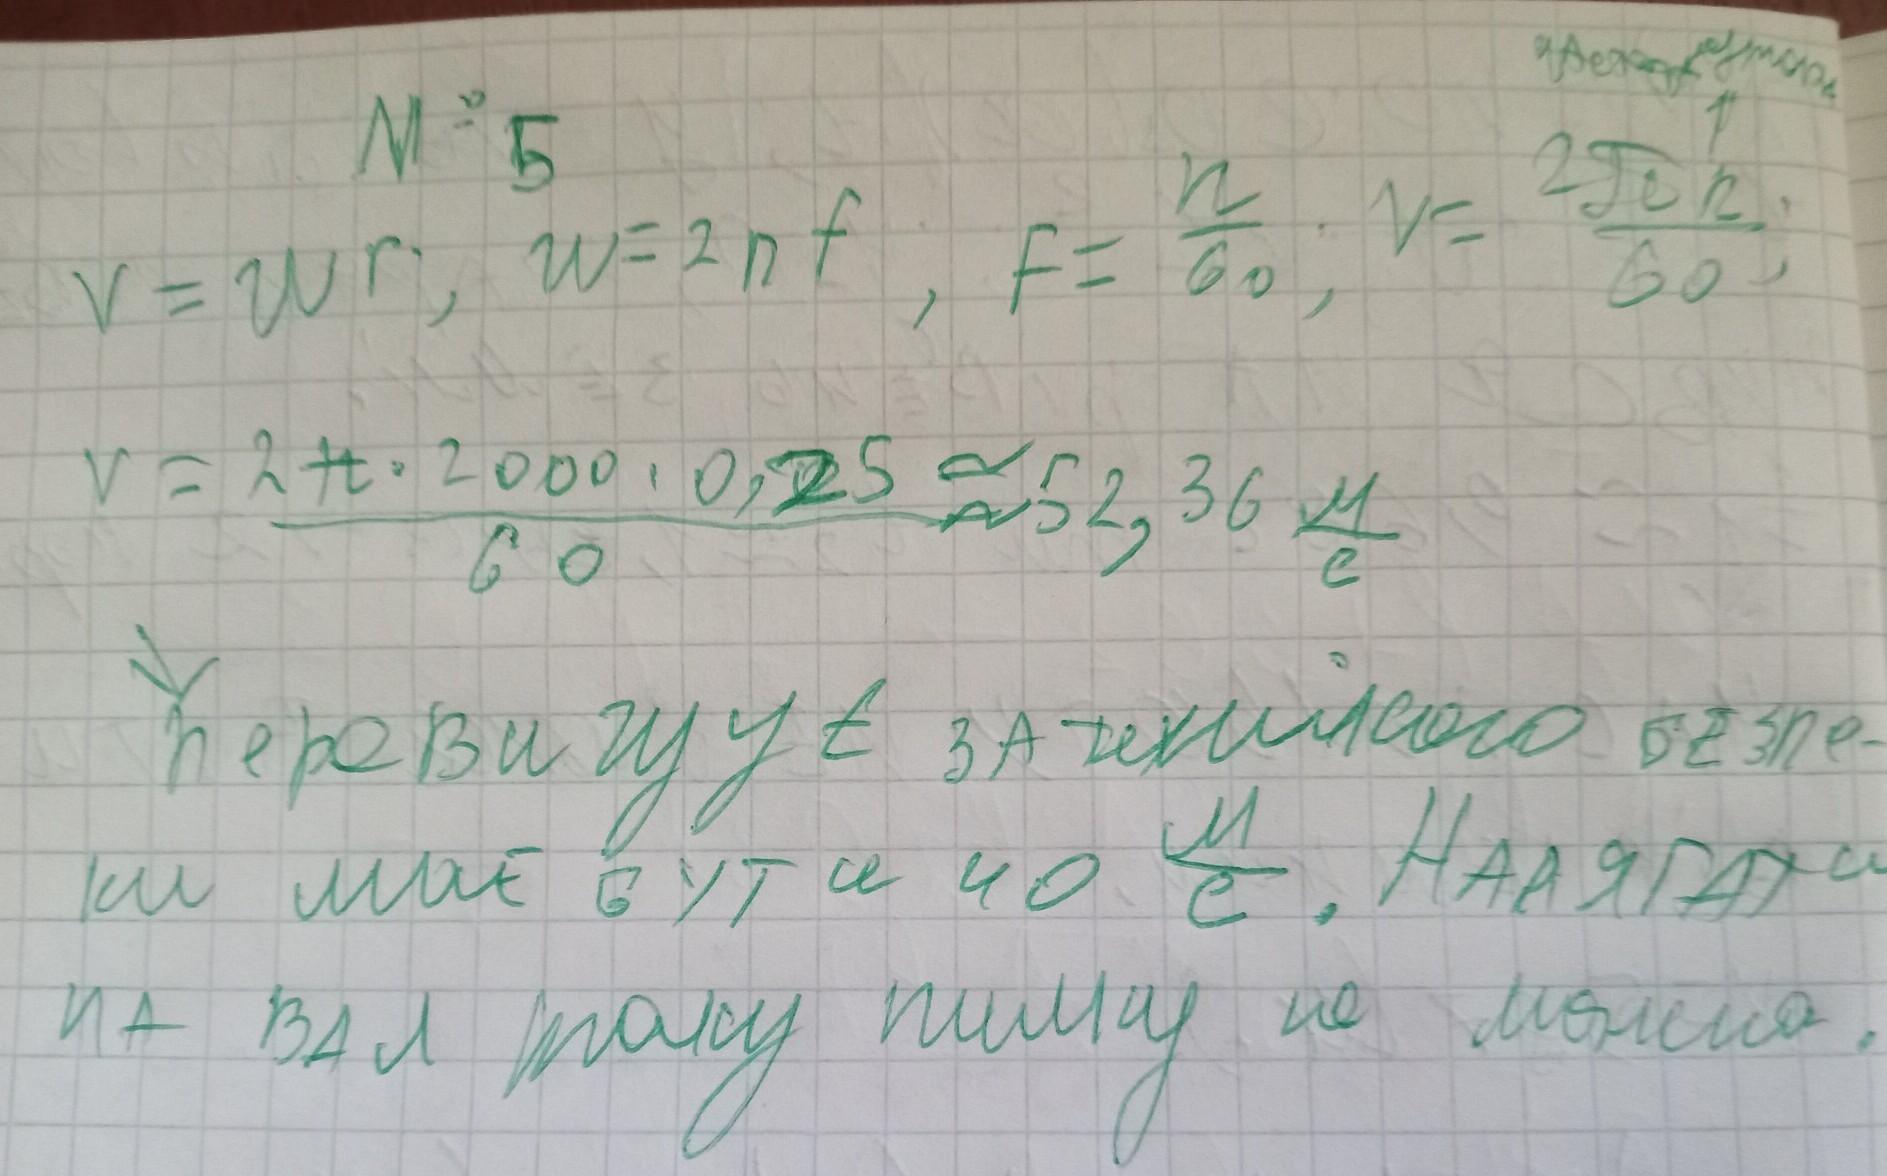 № 5
V = Wr; w = 2nf, F = n/60; V = 2πn/60;
V = 2π · 2000 · 0,25 / 60 ≈ 52,36 м/с
Перевищує за технікого безпе-
ки має бути 40 м/с. Надягати
на вал таку пилку не можна.